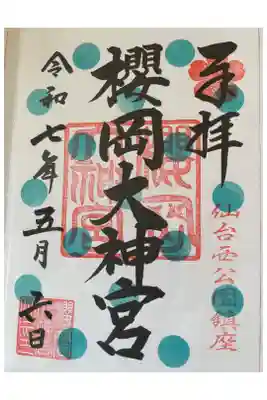 奉拝
櫻岡大神宮
仙台西公園鎮座
令和七年五月六日